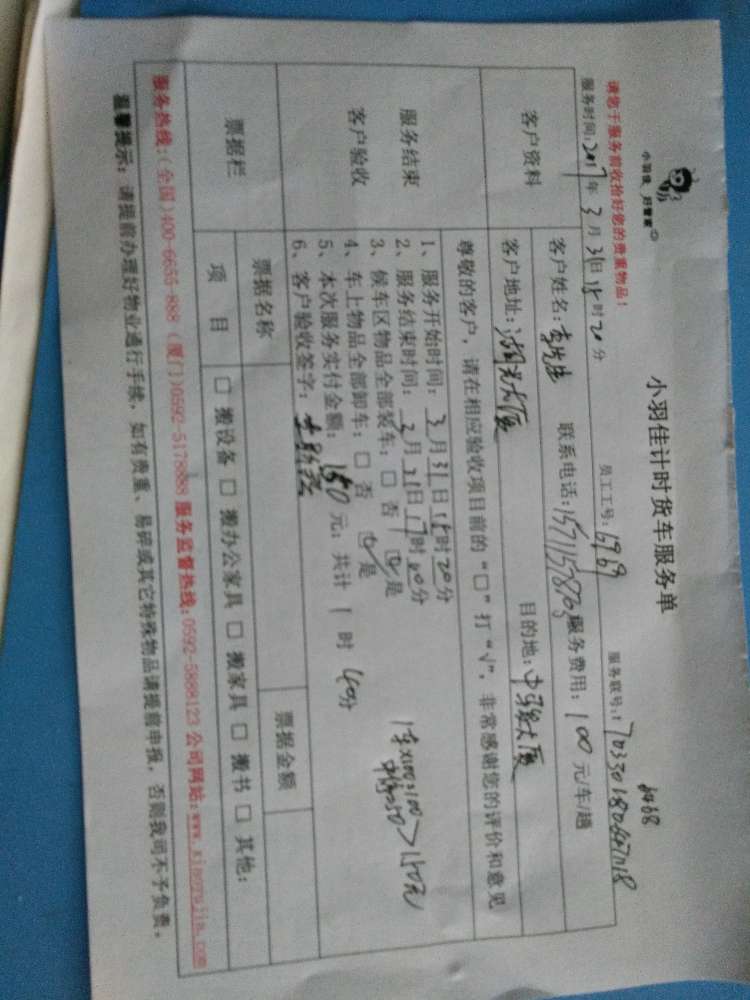 小羽佳 好管家
小羽佳计时货车服务单
6468
请您于服务前收拾好您的贵重物品！
员工工号：6969
服务联号：
服务时间：2017年3月31日15时20分
客户资料
客户姓名：李先生 联系电话：15711578703 服务费用：100元/车/趟
客户地址：湖光大厦 目的地：中孚大厦
尊敬的客户，请在相应验收项目前的“□”打“√”，非常感谢您的评价和意见
服务结束
客户验收
1、服务开始时间：3月31日15时20分
2、服务结束时间：3月31日17时00分
3、候车区物品全部装车：□ 否 ☑ 是
4、车上物品全部卸车：□ 否 ☑ 是
5、本次服务实付金额：150元；共计1时40分
6、客户验收签字：
1车X100=100
>150元
票据栏
票据名称
票据金额
项目
□ 搬设备 □ 搬办公家具 □ 搬家具 □ 搬书 □ 其他：
服务热线：(全国)400-6655-888 (厦门)0592-5178888 服务监督热线：0592-5888123 公司网站：www.xiaoyujia.com
温馨提示：请提前办理好物业通行手续，如有贵重、易碎或其它特殊物品请提前申报，否则我司不予负责。